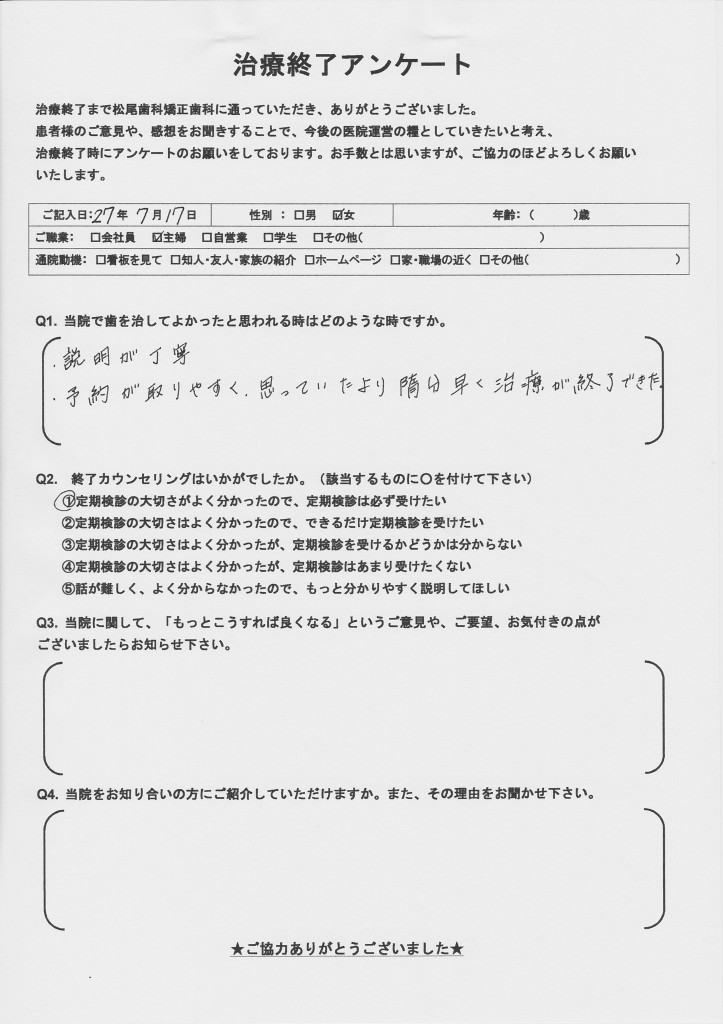 治療終了アンケート
治療終了まで松尾歯科矯正歯科に通っていただき、ありがとうございました。
患者様のご意見や、感想をお聞きすることで、今後の医院運営の糧としていきたいと考え、
治療終了時にアンケートのお願いをしております。お手数とは思いますが、ご協力のほどよろしくお願い
いたします。
ご記入日:27年 7月17日 性別 : □男 ☑女 年齢:( )歳
ご職業: □会社員 ☑主婦 □自営業 □学生 □その他( )
通院動機: □看板を見て □知人・友人・家族の紹介 □ホームページ □家・職場の近く □その他( )
Q1. 当院で歯を治してよかったと思われる時はどのような時ですか。
・説明が丁寧
・予約が取りやすく、思っていたより随分早く治療が終了できた。
Q2. 終了カウンセリングはいかがでしたか。(該当するものに〇を付けて下さい)
①定期検診の大切さがよく分かったので、定期検診は必ず受けたい
②定期検診の大切さはよく分かったので、できるだけ定期検診を受けたい
③定期検診の大切さはよく分かったが、定期検診を受けるかどうかは分からない
④定期検診の大切さはよく分かったが、定期検診はあまり受けたくない
⑤話が難しく、よく分からなかったので、もっと分かりやすく説明してほしい
Q3. 当院に関して、「もっとこうすれば良くなる」というご意見や、ご要望、お気付きの点が
ございましたらお知らせ下さい。
Q4. 当院をお知り合いの方にご紹介していただけますか。また、その理由をお聞かせ下さい。
★ご協力ありがとうございました★